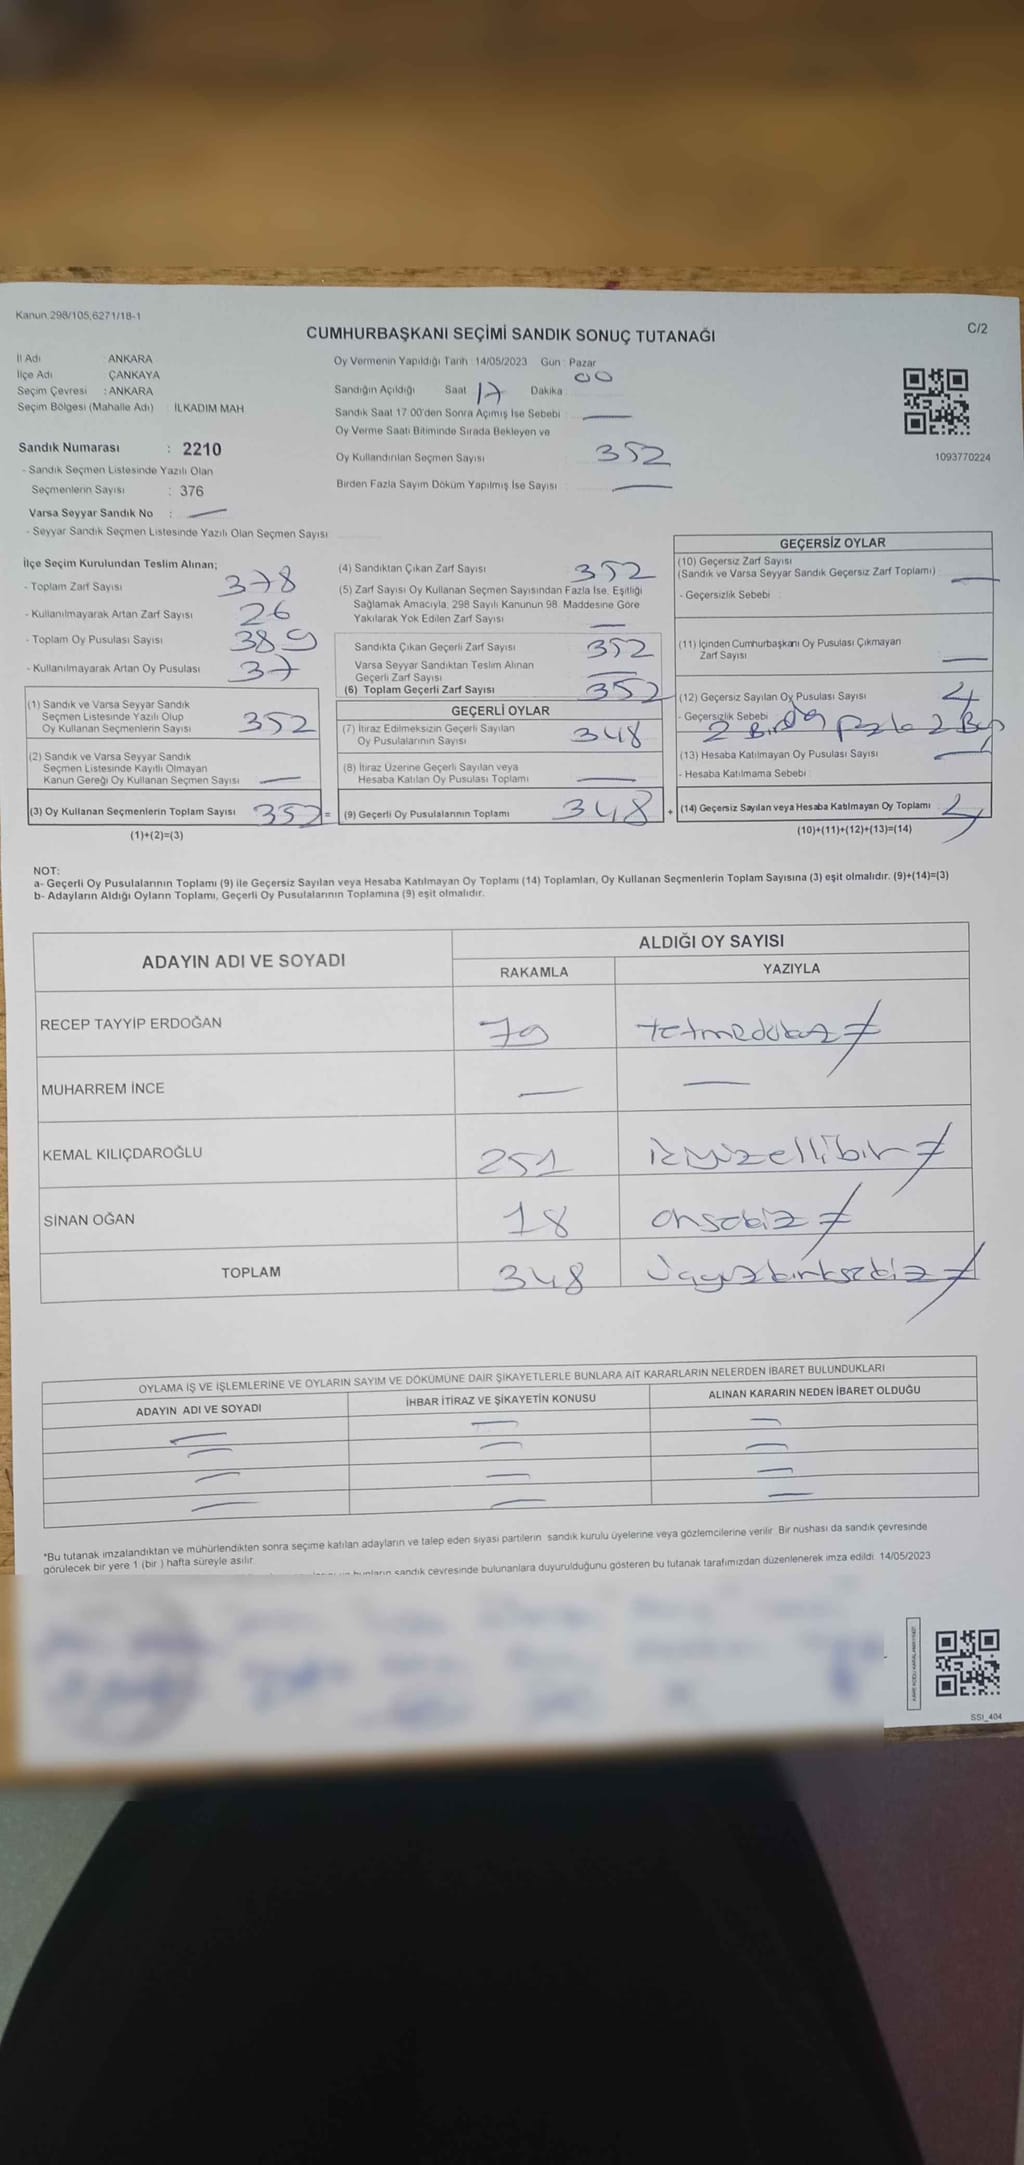 Kanun.298/105,6271/18-1
CUMHURBAŞKANI SEÇİMİ SANDIK SONUÇ TUTANAĞI
C/2
İl Adı : ANKARA
İlçe Adı : ÇANKAYA
Seçim Çevresi : ANKARA
Seçim Bölgesi (Mahalle Adı) : İLKADIM MAH
Sandık Numarası : 2210
- Sandık Seçmen Listesinde Yazılı Olan
Seçmenlerin Sayısı : 376
Varsa Seyyar Sandık No : —
- Seyyar Sandık Seçmen Listesinde Yazılı Olan Seçmen Sayısı
Oy Vermenin Yapıldığı Tarih : 14/05/2023 Gün : Pazar
Sandığın Açıldığı Saat 17 Dakika 00
Sandık Saat 17:00'den Sonra Açımış İse Sebebi : —
Oy Verme Saati Bitiminde Sırada Bekleyen ve
Oy Kullandırılan Seçmen Sayısı 352
Birden Fazla Sayım Döküm Yapılmış İse Sayısı : —
1093770224
İlçe Seçim Kurulundan Teslim Alınan;
- Toplam Zarf Sayısı 378
- Kullanılmayarak Artan Zarf Sayısı 26
- Toplam Oy Pusulası Sayısı 389
- Kullanılmayarak Artan Oy Pusulası 37
(1) Sandık ve Varsa Seyyar Sandık
Seçmen Listesinde Yazılı Olup
Oy Kullanan Seçmenlerin Sayısı 352
(2) Sandık ve Varsa Seyyar Sandık
Seçmen Listesinde Kayıtlı Olmayan
Kanun Gereği Oy Kullanan Seçmen Sayısı —
(3) Oy Kullanan Seçmenlerin Toplam Sayısı 352 =
(1)+(2)=(3)
(4) Sandıktan Çıkan Zarf Sayısı 352
(5) Zarf Sayısı Oy Kullanan Seçmen Sayısından Fazla İse, Eşitliği
Sağlamak Amacıyla, 298 Sayılı Kanunun 98. Maddesine Göre
Yakılarak Yok Edilen Zarf Sayısı —
Sandıkta Çıkan Geçerli Zarf Sayısı 352
Varsa Seyyar Sandıktan Teslim Alınan
Geçerli Zarf Sayısı —
(6) Toplam Geçerli Zarf Sayısı 352
GEÇERLİ OYLAR
(7) İtiraz Edilmeksizin Geçerli Sayılan
Oy Pusulalarının Sayısı 348
(8) İtiraz Üzerine Geçerli Sayılan veya
Hesaba Katılan Oy Pusulası Toplamı —
(9) Geçerli Oy Pusulalarının Toplamı 348 +
GEÇERSİZ OYLAR
(10) Geçersiz Zarf Sayısı
(Sandık ve Varsa Seyyar Sandık Geçersiz Zarf Toplamı) : —
- Geçersizlik Sebebi :
(11) İçinden Cumhurbaşkanı Oy Pusulası Çıkmayan
Zarf Sayısı —
(12) Geçersiz Sayılan Oy Pusulası Sayısı 4
- Geçersizlik Sebebi 2 Birden fazla 2 Boş
(13) Hesaba Katılmayan Oy Pusulası Sayısı —
- Hesaba Katılmama Sebebi
(14) Geçersiz Sayılan veya Hesaba Katılmayan Oy Toplamı 4
(10)+(11)+(12)+(13)=(14)
NOT:
a- Geçerli Oy Pusulalarının Toplamı (9) ile Geçersiz Sayılan veya Hesaba Katılmayan Oy Toplamı (14) Toplamları, Oy Kullanan Seçmenlerin Toplam Sayısına (3) eşit olmalıdır. (9)+(14)=(3)
b- Adayların Aldığı Oyların Toplamı, Geçerli Oy Pusulalarının Toplamına (9) eşit olmalıdır.
ADAYIN ADI VE SOYADI
ALDIĞI OY SAYISI
RAKAMLA YAZIYLA
RECEP TAYYİP ERDOĞAN 79
MUHARREM İNCE — —
KEMAL KILIÇDAROĞLU 251 ikiyüzellibir
SİNAN OĞAN 18 onsekiz
TOPLAM 348
OYLAMA İŞ VE İŞLEMLERİNE VE OYLARIN SAYIM VE DÖKÜMÜNE DAİR ŞİKAYETLERLE BUNLARA AİT KARARLARIN NELERDEN İBARET BULUNDUKLARI
ADAYIN ADI VE SOYADI İHBAR İTİRAZ VE ŞİKAYETİN KONUSU ALINAN KARARIN NEDEN İBARET OLDUĞU
— — —
— — —
— — —
— — —
*Bu tutanak imzalandıktan ve mühürlendikten sonra seçime katılan adayların ve talep eden siyasi partilerin sandık kurulu üyelerine veya gözlemcilerine verilir. Bir nushası da sandık çevresinde
görülecek bir yere 1 (bir ) hafta süreyle asılır.
sandık çevresinde bulunanlara duyurulduğunu gösteren bu tutanak tarafımızdan düzenlenerek imza edildi. 14/05/2023
SSI_404